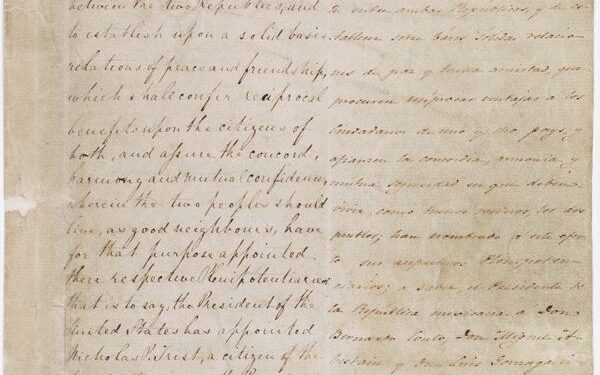 between the two Republics, and
to establish upon a solid basis
relations of peace and friendship,
which shall confer reciprocal
benefits upon the citizens of
both, and assure the concord,
harmony and mutual confidence,
wherein the two peoples should
live, as good neighbours, have
for that purpose appointed
their respective Plenipotentiaries:
that is to say, the President of the
United States has appointed
Nicholas P. Trist, a citizen of the
te entre ambas Repúblicas, y de es-
tablecer sobre bases sólidas relacio-
nes de paz y buena amistad, que
procuren recíprocas ventajas a los
ciudadanos de uno y otro pays, y
afiancen la concordia, armonia, y
mutua seguridad en que deben
vivir, como buenos vecinos, los dos
pueblos; han nombrado a este efec
to sus respectivos Plenipoten-
ciarios; a saber, el Presidente de
la República mexicana a Don
Bernardo Couto, Don Miguel A-
tristain y Don Luis Gonzaga